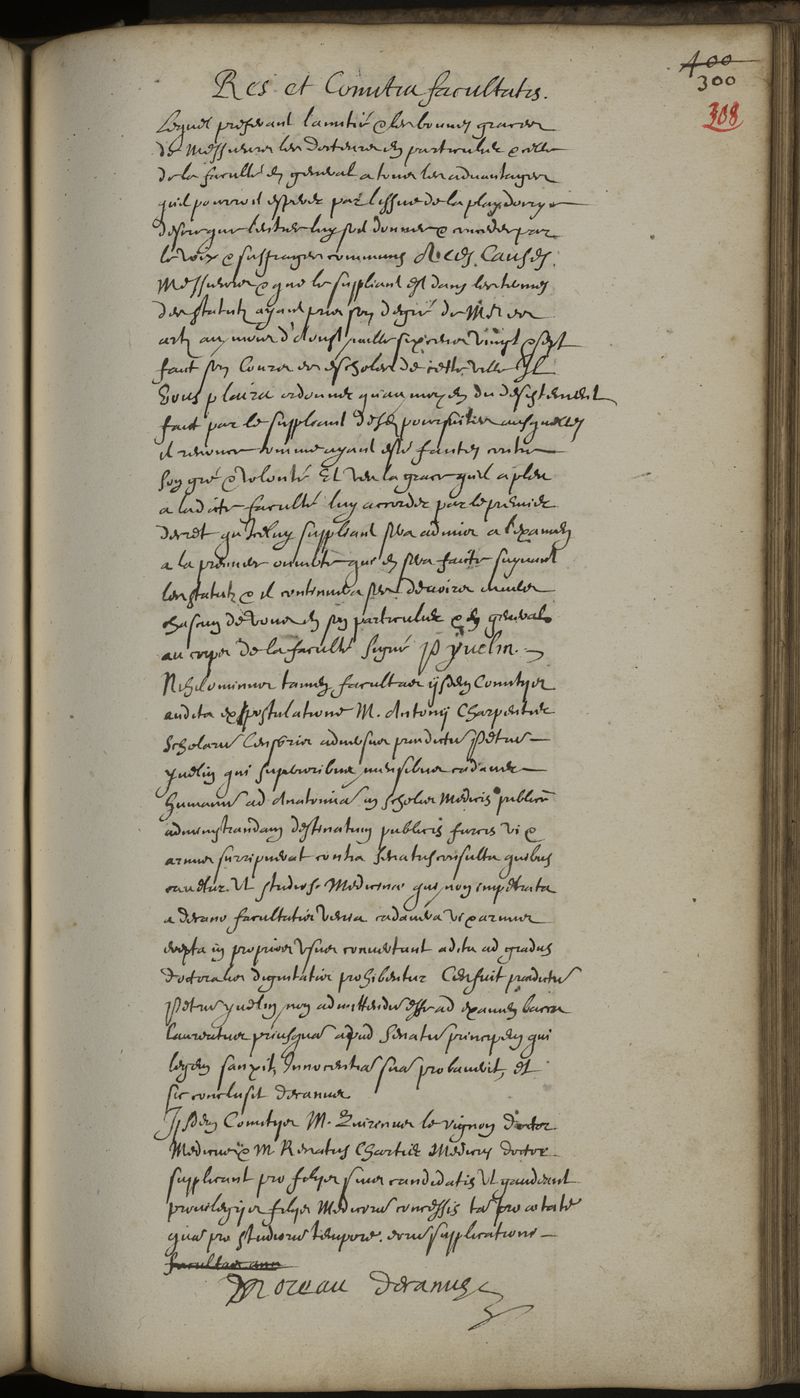 400
300
308
Res et Comitia facultatis.
Lequel preferant l'amitié & les bonnes graces
de Messieurs les docteurs en particulier & celle
de la faculté en general a tous les advantages
qu'il pourroit esperer par l'issue de la playdoirye
luy donner & par
le voix & suffrages communs A Ces Causes,
Messieurs & que le suppliant est dans les termes
des statutz ayant pris son degré de Mes es
artz au mois d'Aoust mille six cens vingt & sept
faict son Cours es escholes de ceste ville Il
Vous plaira ordonner qu'au moyen du desistement
faict par le suppliant de ses poursuites ausquelles
il renonce comme ayant esté faictes contre
son gré & volonté Et veu la grace qu'il a pleu
a ladite faculté luy accorder par le premier
decret qu'Iceluy suppliant sera admis a l'examen
a la premier que en sera faicte suyvant
les statutz & il continuera ses devoirs envers
chascun de vous en son particulier & en general
au corps de la faculté signé P yvelin.
Nihilominus tamen facultas ijsdem Comitijs
audita expostulatione M. Antonij Charpentier
Scholarum Censoris adversus praedictum Petrum
yvelin qui superioribus mensibus cadaver
humanum ad Anatomiam in scholis Medicis publice
administrandam destinatum publicis furcis vi &
armis surripuerat contra Senatusconsulta quibus
cavetur Ut studiosi Medicinae qui non impetrata
a decano facultatis venia cadavera vi & armis
erepta in proprios usus convertunt aditu ad gradus
doctoralis dignitatis prohibentur Censuit praedictum
Petrum yvelin non admittendum esse ad examen bacca
laureatus priusquam apud Senatus principem qui
legem sanxit, Innocentiam suam probaverit, et
sic conclusit decanus
Ijsdem Comitijs M. Quirinus le vignon doctor
Medicus & M Renatus Chartier Medicus doctor
supplicant pro filijs suis candidatis Ut gaudeant
privilegijs filijs Medicorum concessis tam pro aetate
quam pro studiorum tempore. eorum supplicatione
facultas ann
Moreau decanus